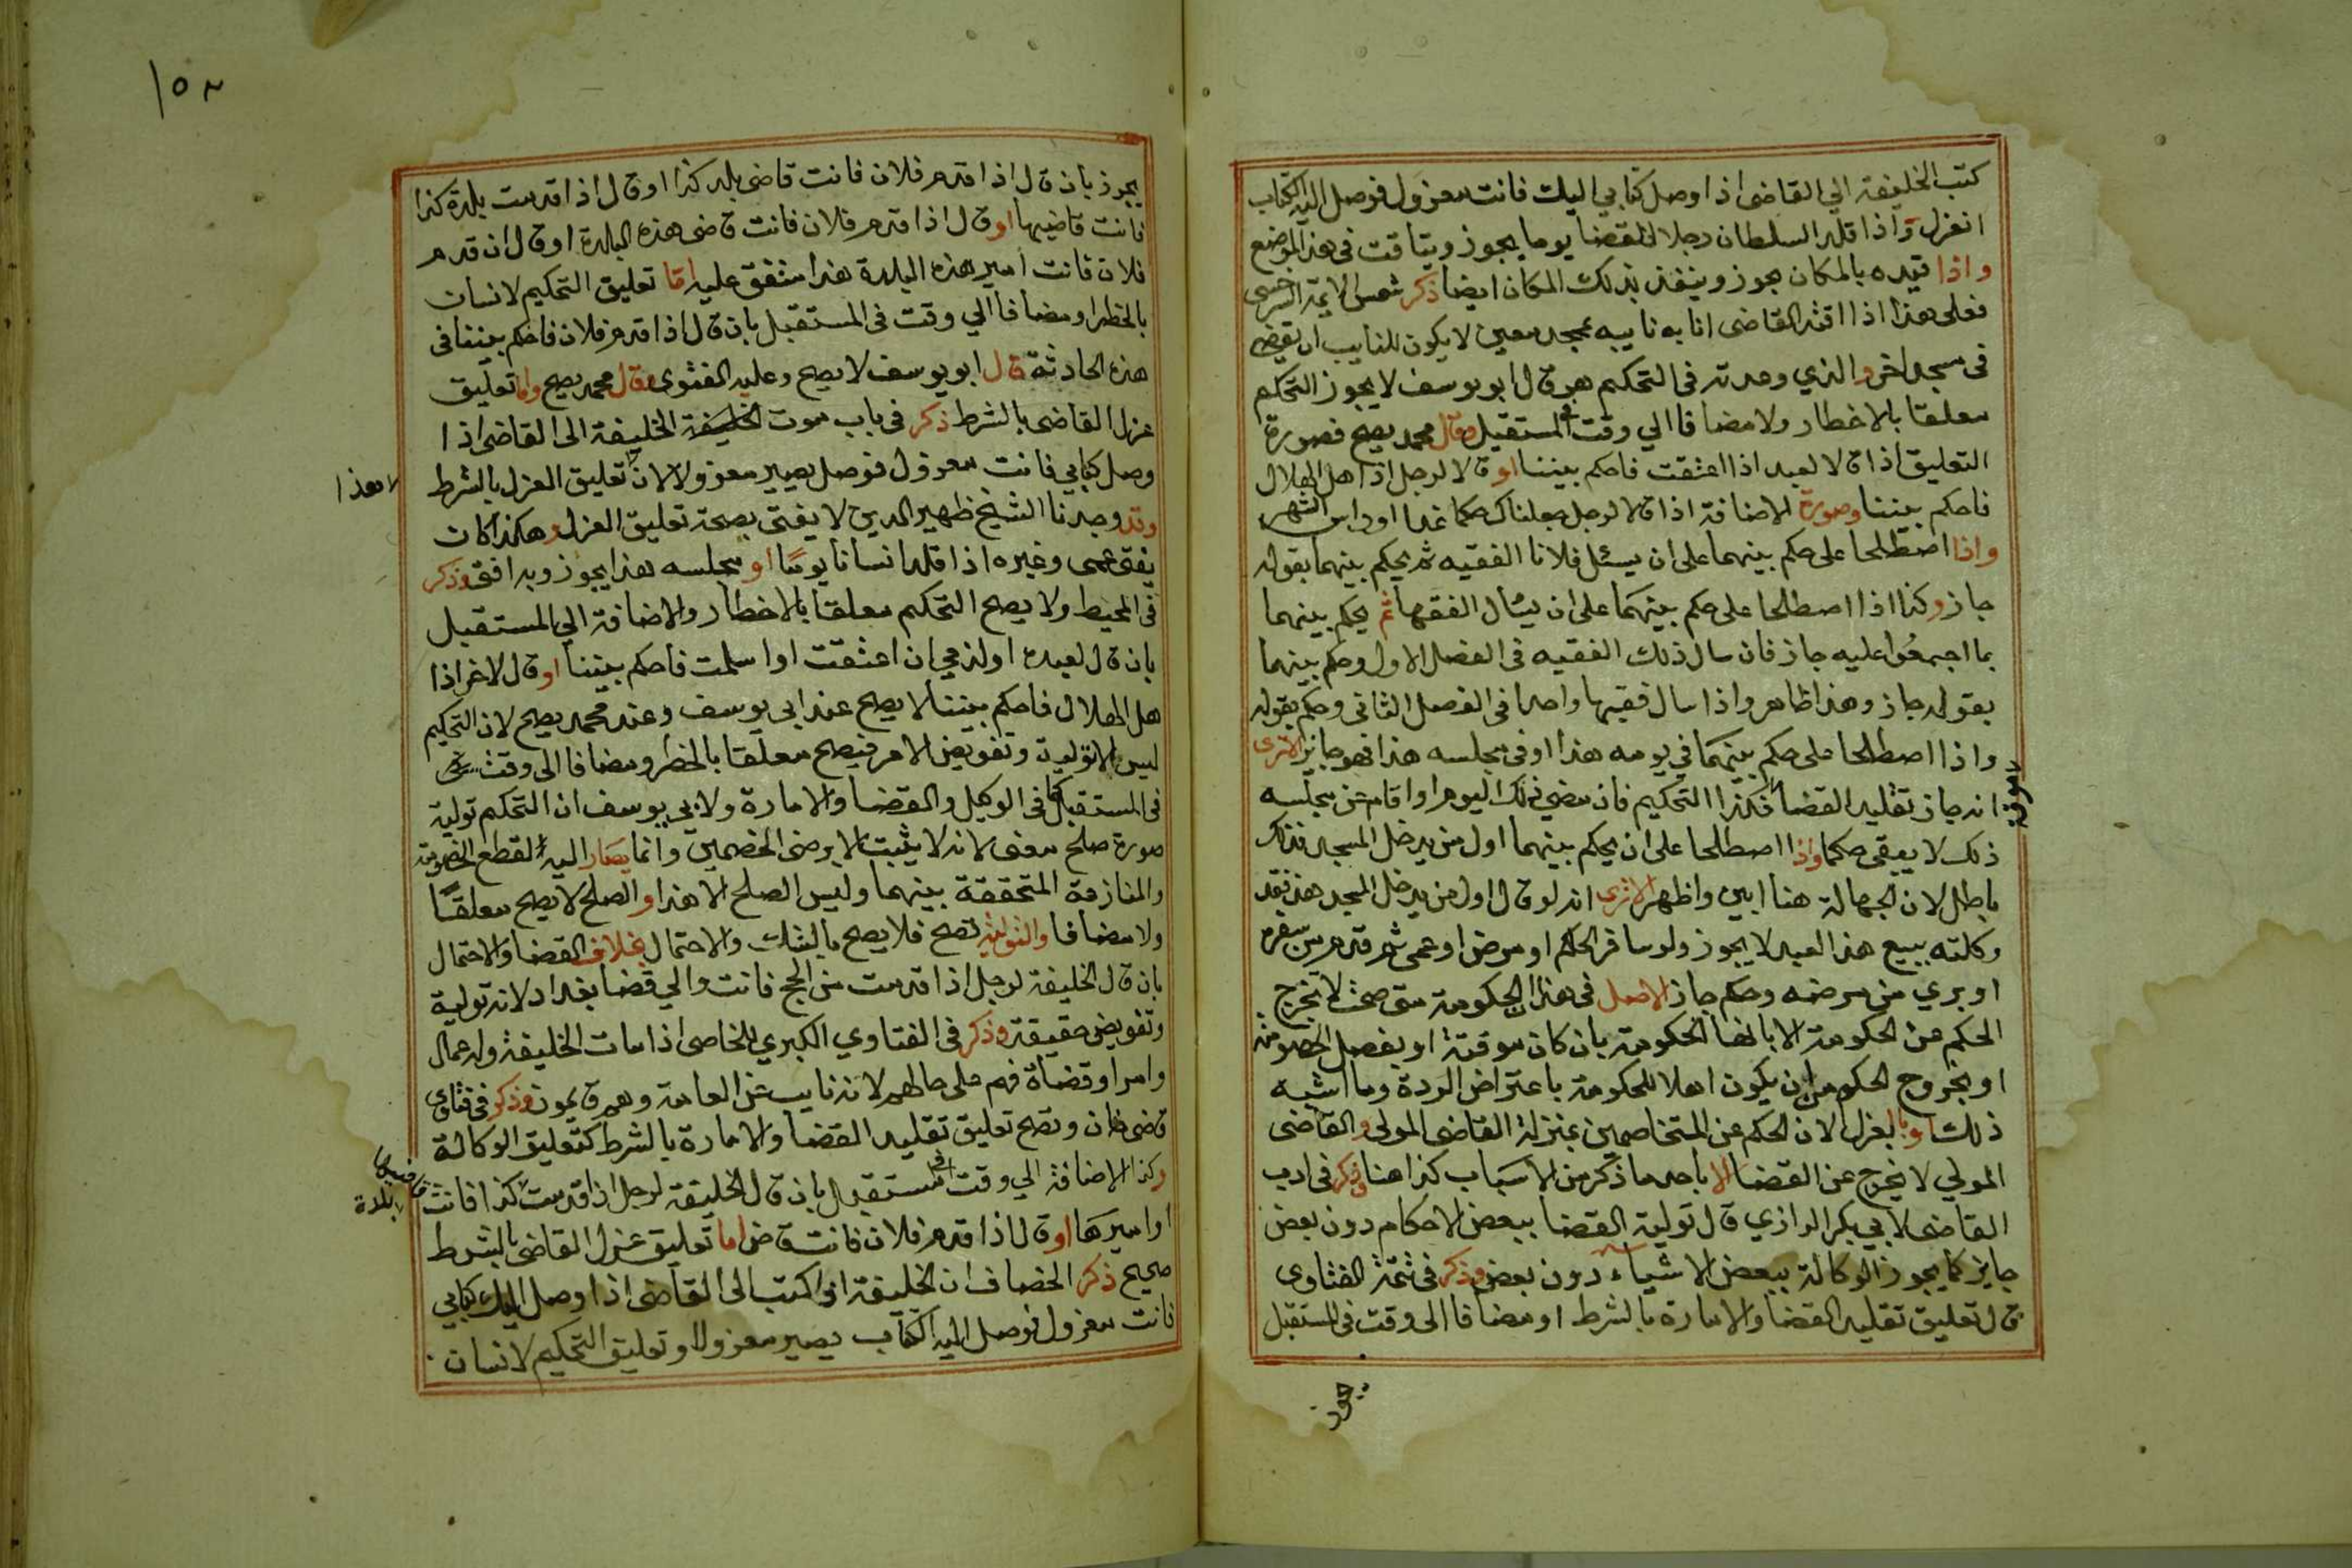 كتب الخليفة الي القاضى اذا وصل كتابي اليك فانت معزول فوصل اليه الكتاب
انعزل واذا قلد السلطان رجلا للقضا يوما يجوز ويتاقت فى هذا الموضع
واذا قيده بالمكان يجوز وينفذ بذلك المكان ايضا ذكر شمس الايمة السرخسى
فعلى هذا اذا القاضى انابه نايبه بمسجد معين لا يكون للنايب ان يقضى
فى مسجد اخر والذي وعدته فى التحكيم هو قال ابو يوسف لا يجوز التحكيم
معلقا بالاخطار ولا مضافا الي وقت فى المستقبل وقال محمد يصح فصورة
التعليق اذا قالا لعبد اذا اعتقت فاحكم بيننا او قالا لرجل اذا اهل الهلال
فاحكم بيننا وصورة الاضافة اذا قالا لرجل جعلناك حكما غدا او راس الشهر
واذا اصطلحا على حكم بينهما على ان يسئل فلانا الفقيه ثم يحكم بينهما بقوله
جاز وكذا اذا اصطلحا على حكم بينهما على ان يسال الفقها ثم يحكم بينهما
بما اجمعوا عليه جاز فان سال ذلك الفقيه فى الفصل الاول وحكم بينهما
بقوله جاز وهذا ظاهر واذا سال فقيها واحدا فى الفصل الثانى وحكم بقوله
واذا اصطلحا على حكم بينهما في يومه هذا او فى مجلسه هذا فهو جايز الا ترى
انه جاز تقليد القضا فكذا التحكيم فان مضي ذلك اليوم او اقام عن مجلسه
ذلك لا يبقى حكما واذا اصطلحا على ان يحكم بينهما اول من يدخل المسجد فذلك
باطل لان الجهالة هنا ابين واظهر الا ترى انه لو قال اول من يدخل المسجد هذا فقد
وكلته ببيع هذا العبد لا يجوز ولو سافر الحكم او مرض او عمى ثم قدم من سفره
او بري من مرضه وحكم جاز الاصل فى هذا ان الحكومة متى صحت لا يخرج
الحكم عن الحكومة الا بالنها الحكومة بان كان موقتة او بفصل الخصومة
او بخروج الحكم من ان يكون اهلا للحكومة باعتراض الردة وما اشبه
ذلك او بالعزل لان الحكم عن المتخاصمين بمنزلة القاضى المولى والقاضى
المولي لا يخرج عن القضا الا باحد ما ذكر من الاسباب كذا هنا وذكر فى ادب
القاضى لابي بكر الرازي قال تولية القضا ببعض الاحكام دون بعض
جايز كما يجوز الوكالة ببعض الاشياء دون بعض وذكر فى تتمة الفتاوى
قال تعليق تقليد القضا والامارة بالشرط او مضافا الى وقت فى المستقبل
يجوز
١٥٢
يجوز بان قال اذا قدم فلان فانت قاضى بلد كذا او قال اذا قدمت بلدة كذا
فانت قاضيها او قال اذا قدم فلان فانت قاضى هذه البلدة او قال ان قدم
فلان فانت امير هذه البلدة هذا متفق عليه اما تعليق التحكيم لانسان
بالخطر او مضافا الي وقت فى المستقبل بان قال اذا قدم فلان فاحكم بيننا فى
هذه الحادثة قال ابو يوسف لا يصح وعليه الفتوى وقال محمد يصح واما تعليق
عزل القاضى بالشرط ذكر فى باب موت الخليفة الخليفة الى القاضى اذا
وصل كتابي فانت معزول فوصل يصير معزولا لان تعليق العزل بالشرط
لا هذا
وقد وجدنا الشيخ ظهير الدين لا يفتى بصحة تعليق العزل وهكذا كان
يفتى عمى وغيره اذا قلد انسانا يوما او مجلسه هذا يجوز وبه افتى وذكر
فى المحيط ولا يصح التحكيم معلقا بالاخطار والاضافة الي المستقبل
بان قال لعبده او لذمي ان اعتقت او اسلمت فاحكم بيننا او قال لاخر اذا
هل الهلال فاحكم بيننا لا يصح عند ابى يوسف وعند محمد يصح لان التحكيم
ليس الا تولية وتفويض الامر فيصح معلقا بالخطر ومضافا الى وقت
فى المستقبل كما فى الوكيل والقضا والامارة ولابي يوسف ان التحكم تولية
صورة صلح معنى لانه لا يثبت الا برضى الخصمين وانما يصار اليه لقطع الخصومة
والمنازعة المتحققة بينهما وليس الصلح الا هذا والصلح لا يصح معلقا
ولا مضافا والتولية تصح فلا يصح بالشك والاحتمال بخلاف القضا والاحتمال
بان قال الخليفة لرجل اذا قدمت من الحج فانت والي قضا بغداد لانه تولية
وتفويض حقيقة وذكر فى الفتاوي الكبري للخاصى اذا مات الخليفة وله عمال
وامرا وقضاة فهم على حالهم لانه نايب عن العامة وهم قايمون وذكر فى فتاوى
قاضى خان وتصح تعليق تقليد القضا والامارة بالشرط كتعليق الوكالة
وكذا الاضافة الي وقت فى مستقبل بان قال الخليفة لرجل اذا قدمت كذا فانت قاضيها
بلدة
او اميرها او قال اذا قدم فلان فانت قاض اما تعليق عزل القاضى بالشرط
صحيح ذكر الخصاف ان الخليفة اذا كتب الى القاضى اذا وصل اليك كتابي
فانت معزول فوصل اليه الكتاب يصير معزولا وتعليق التحكيم لانسان